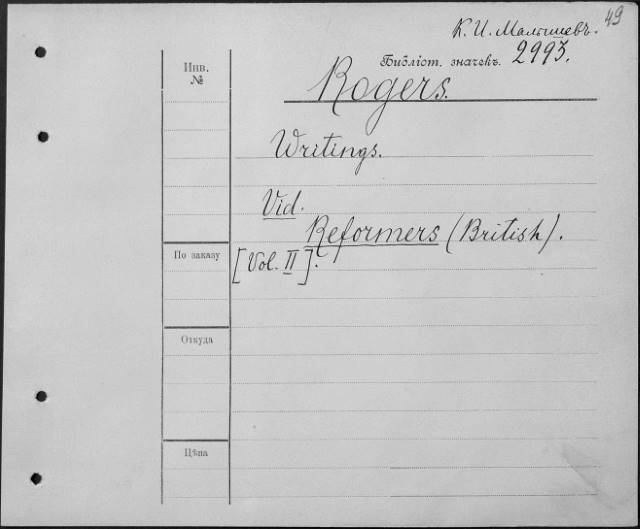 49
К. И. Малышевъ.
Библіот. значекъ. 2993.
Инв.
№
Rogers.
Writings.
Vid.
Reformers (British).
По заказу
[Vol. II].
Откуда
Цѣна